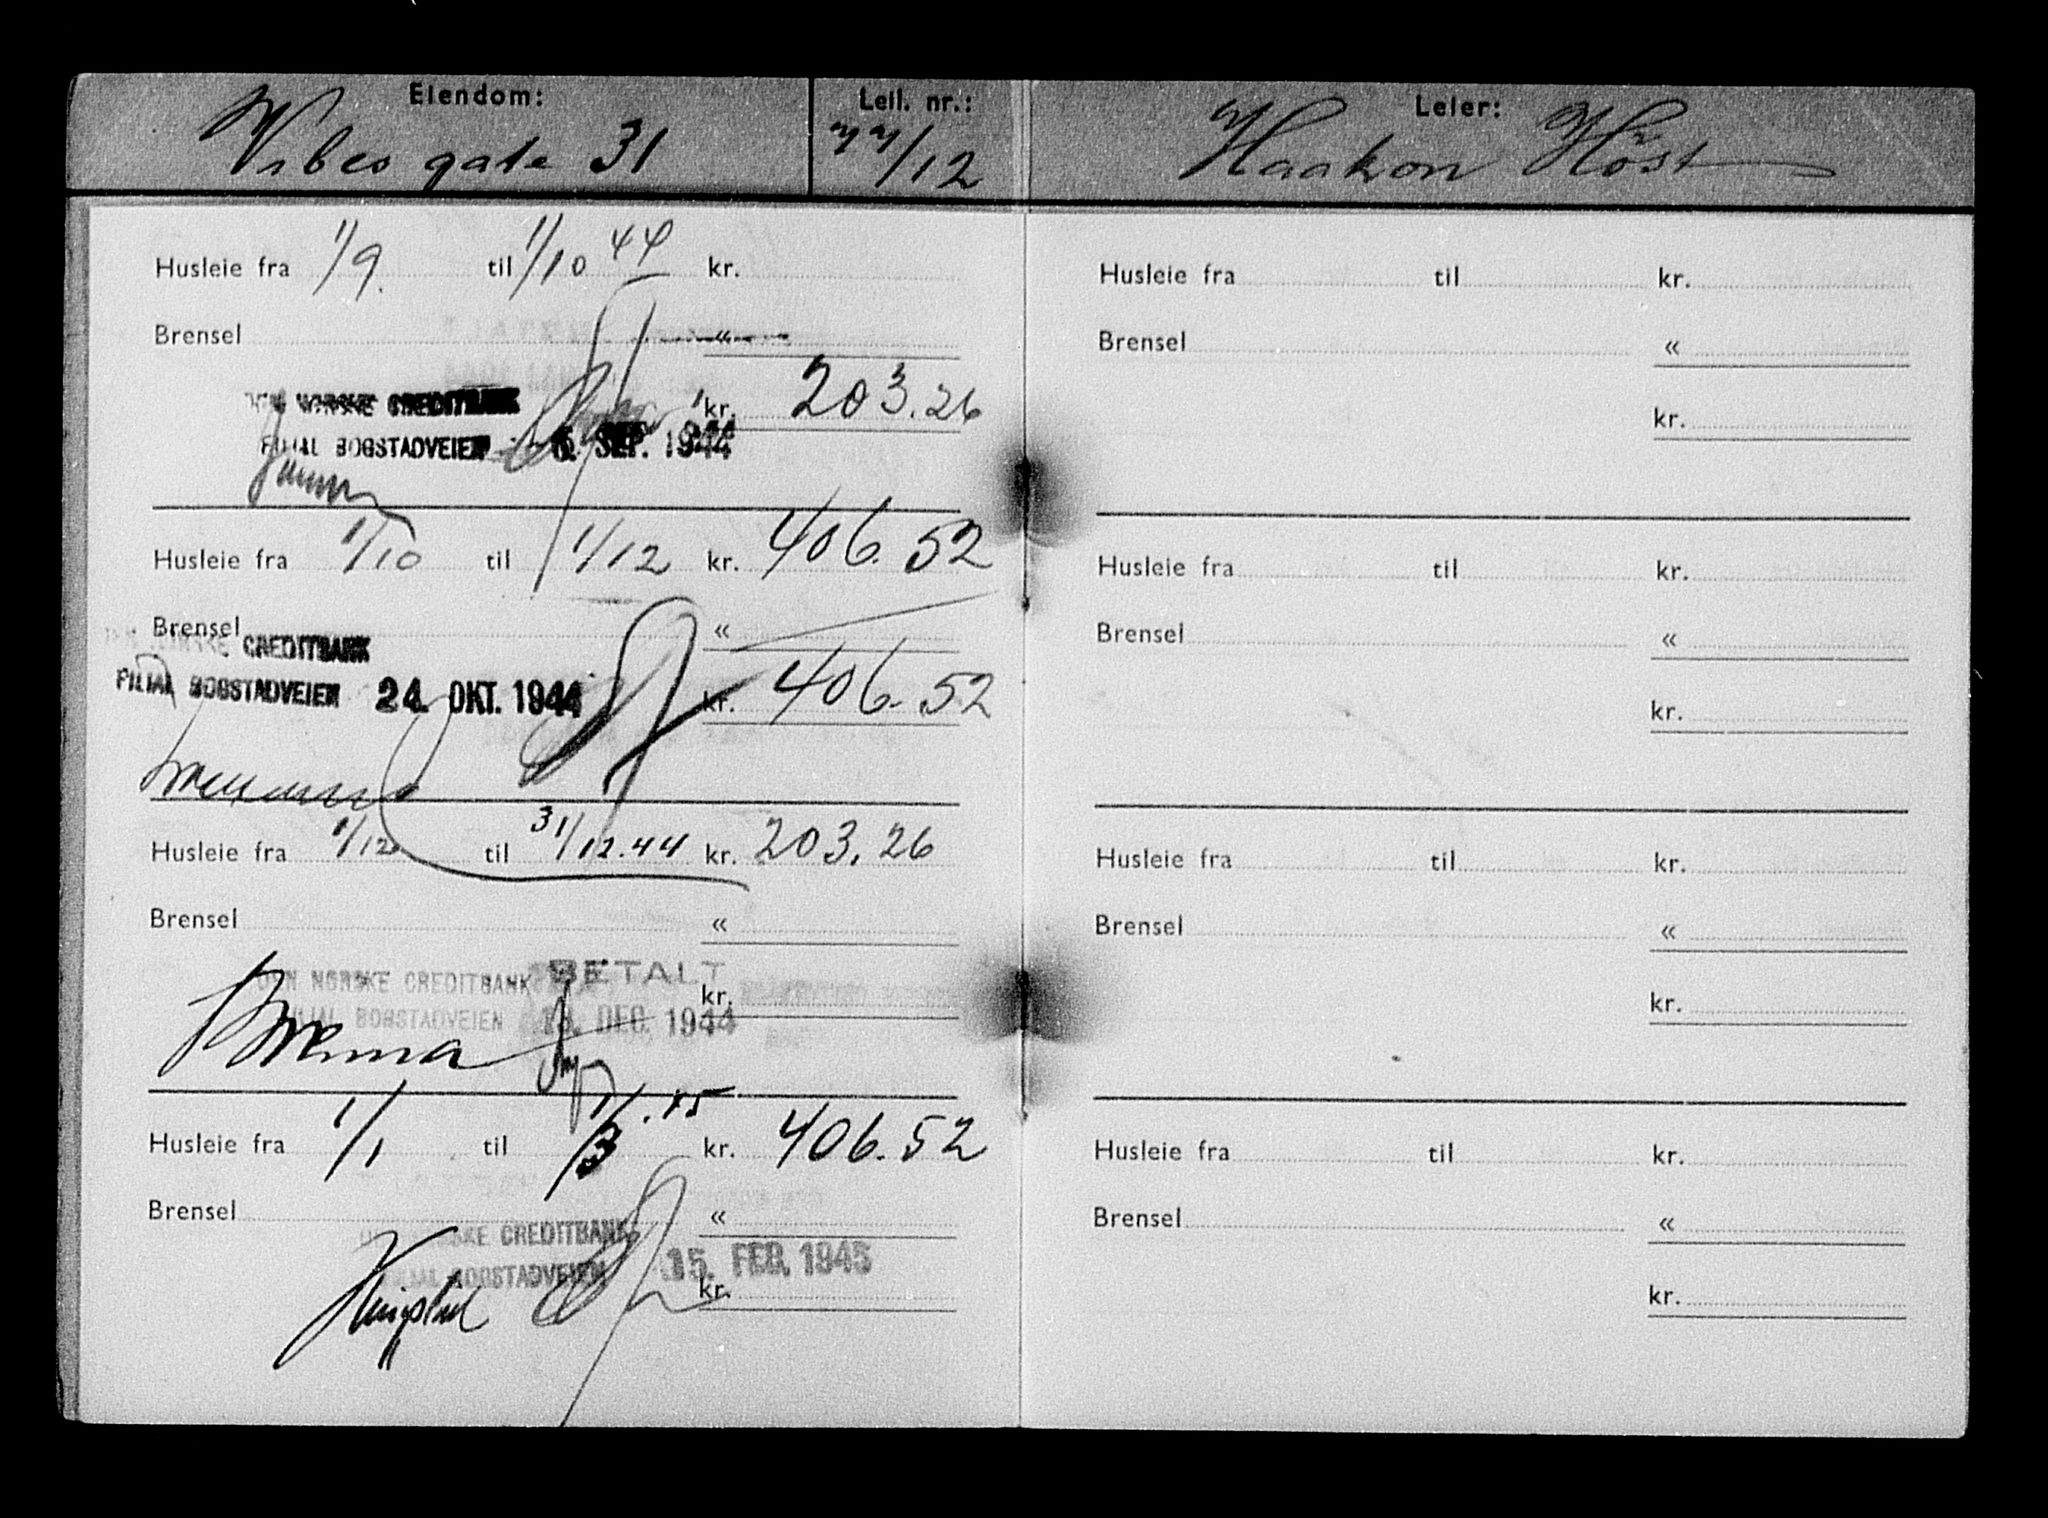 Eiendom:
Vibes gate 31
Leil. nr.:
/12
Leier:
Haakon Höst
Husleie fra 1/9. til 1/10 44 kr.
Brensel «
DEN NORSKE CREDITBANK
kr. 203.26
FILIAL BOGSTADVEIEN SEP. 1944
Husleie fra 1/10 til 1/12 kr. 406.52
Brensel «
DEN NORSKE CREDITBANK
FILIAL BOGSTADVEIEN 24. OKT. 1944 kr. 406.52
Husleie fra 1/12 til 31/12.44 kr. 203.26
Brensel «
DEN NORSKE CREDITBANK BETALT
kr.
FILIAL BOGSTADVEIEN DEC. 1944
Husleie fra 1/1 til 1/3.45 kr. 406.52
Brensel «
DEN NORSKE CREDITBANK
FILIAL BOGSTADVEIEN 15. FEB. 1945
kr.
Husleie fra til kr.
Brensel «
kr.
Husleie fra til kr.
Brensel «
kr.
Husleie fra til kr.
Brensel «
kr.
Husleie fra til kr.
Brensel «
kr.